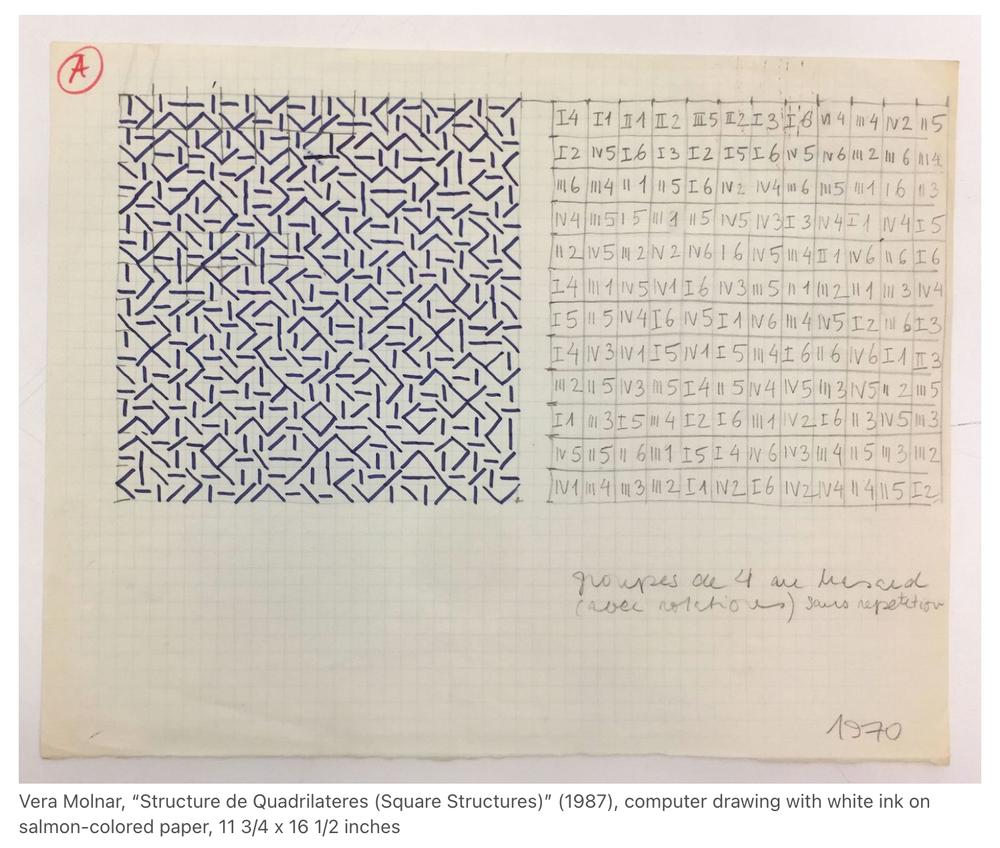 A
I4 I1 II1 II2 III5 II2 I3 I6 VI4 III4 IV2 II5
I2 IV5 I6 I3 I2 I5 I6 IV5 IV6 III2 III6 III4
III6 III4 II1 II5 I6 IV2 IV4 III6 III5 III1 I6 II3
IV4 III5 I5 III1 II5 IV5 IV3 I3 IV4 I1 IV4 I5
II2 IV5 III2 IV2 IV6 I6 IV5 III4 II1 IV6 II6 I6
I4 III1 IV5 IV1 I6 IV3 III5 II1 III2 II1 III3 IV4
I5 II5 IV4 I6 IV5 I1 IV6 III4 IV5 I2 III6 I3
I4 IV3 IV1 I5 IV1 I5 III4 I6 II6 IV6 I1 II3
III2 II5 IV3 III5 I4 II5 IV4 IV5 III3 IV5 II2 III5
I1 III3 I5 III4 I2 I6 III1 IV2 I6 II3 IV5 III3
IV5 II5 II6 III1 I5 I4 IV6 IV3 III4 II5 III3 III2
IV1 III4 III3 III2 I1 IV2 I6 IV2 IV4 II4 II5 I2
groupes de 4 au hasard
(avec rotations) sans repetition
1970
Vera Molnar, “Structure de Quadrilateres (Square Structures)” (1987), computer drawing with white ink on
salmon-colored paper, 11 3/4 x 16 1/2 inches